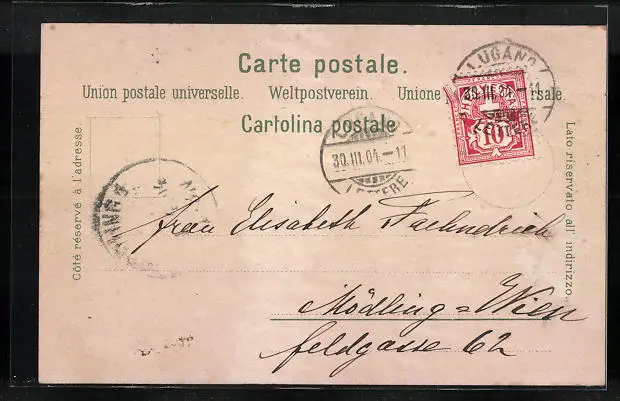 Carte postale.
Union postale universelle. Weltpostverein. Unione p sale.
Cartolina postale
LUGANO
30.III.04.-11
LETTERE
10
LUGANO
30.III.04.-11
LETTERE
Côté réservé à l'adresse.
Lato riservato all' indirizzo.
Frau Elisabeth
Mödling=Wien
Feldgasse 62